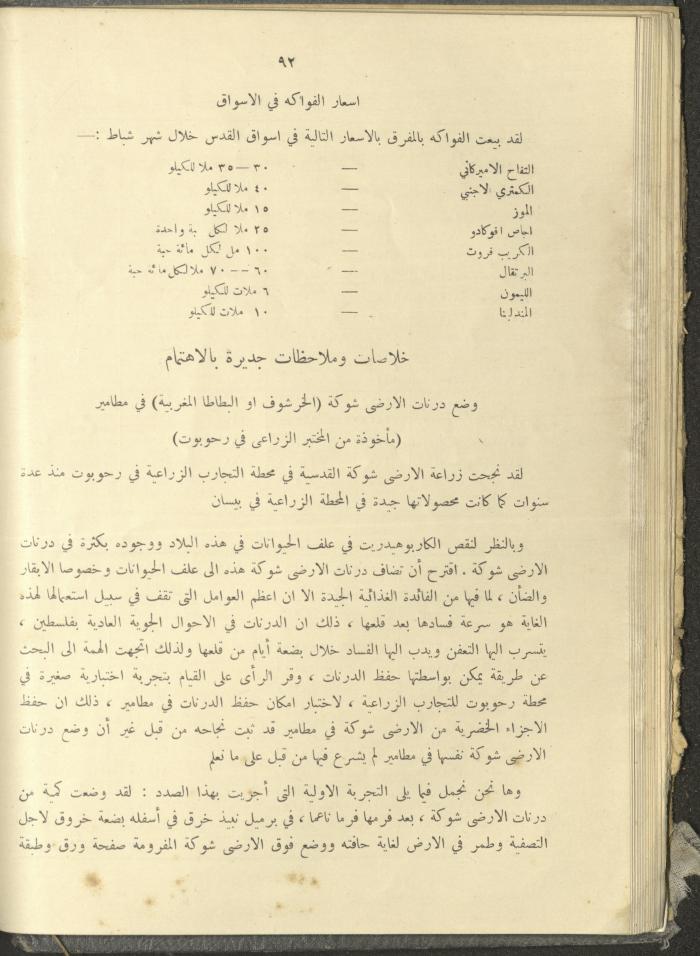 ٩٢
اسعار الفواكه في الاسواق
لقد بيعت الفواكه بالمفرق بالاسعار التالية في اسواق القدس خلال شهر شباط :—
التفاح الاميركاني — ٣٠ — ٣٥ ملا للكيلو
الكمثري الاجنبي — ٤٠ ملا للكيلو
الموز — ١٥ ملا للكيلو
اجاص افوكادو — ٢٥ ملا لكل بة واحدة
الكريب فروت — ١٠٠ مل لكل مائة حبة
البرتقال — ٦٠ —— ٧٠ ملا لكل مائة حبة
الليمون — ٦ ملات للكيلو
المندلينا — ١٠ ملات للكيلو
خلاصات وملاحظات جديرة بالاهتمام
وضع درنات الارضى شوكة (الخرشوف او البطاطا المغربية) في مطامير
(مأخوذة من المختبر الزراعى في رحوبوت)
لقد نجحت زراعة الارضى شوكة القدسية في محطة التجارب الزراعية في رحوبوت منذ عدة
سنوات كما كانت محصولاتها جيدة في المحطة الزراعية في بيسان
وبالنظر لنقص الكاربوهيدريت في علف الحيوانات في هذه البلاد ووجوده بكثرة في درنات
الارضى شوكة . اقترح أن تضاف درنات الارضى شوكة هذه الى علف الحيوانات وخصوصا الابقار
والضأن ، لما فيها من الفائدة الغذائية الجيدة الا ان اعظم العوامل التى تقف في سبيل استعمالها لهذه
الغاية هو سرعة فسادها بعد قلعها ، ذلك ان الدرنات في الاحوال الجوية العادية بفلسطين ،
يتسرب اليها التعفن ويدب اليها الفساد خلال بضعة أيام من قلعها ولذلك اتجهت الهمة الى البحث
عن طريقة يمكن بواسطتها حفظ الدرنات ، وقر الرأى على القيام بتجربة اختبارية صغيرة في
محطة رحوبوت للتجارب الزراعية ، لاختبار امكان حفظ الدرنات في مطامير ، ذلك ان حفظ
الاجزاء الخضرية من الارضى شوكة في مطامير قد ثبت نجاحه من قبل غير أن وضع درنات
الارضى شوكة نفسها في مطامير لم يشرع فيها من قبل على ما نعلم
وها نحن نجمل فيما يلى التجربة الاولية التى أجريت بهذا الصدد : لقد وضعت كمية من
درنات الارضى شوكة ، بعد فرمها فرما ناعما ، في برميل نبيذ خرق في أسفله بضعة خروق لاجل
التصفية وطمر في الارض لغاية حافته ووضع فوق الارضى شوكة المفرومة صفحة ورق وطبقة